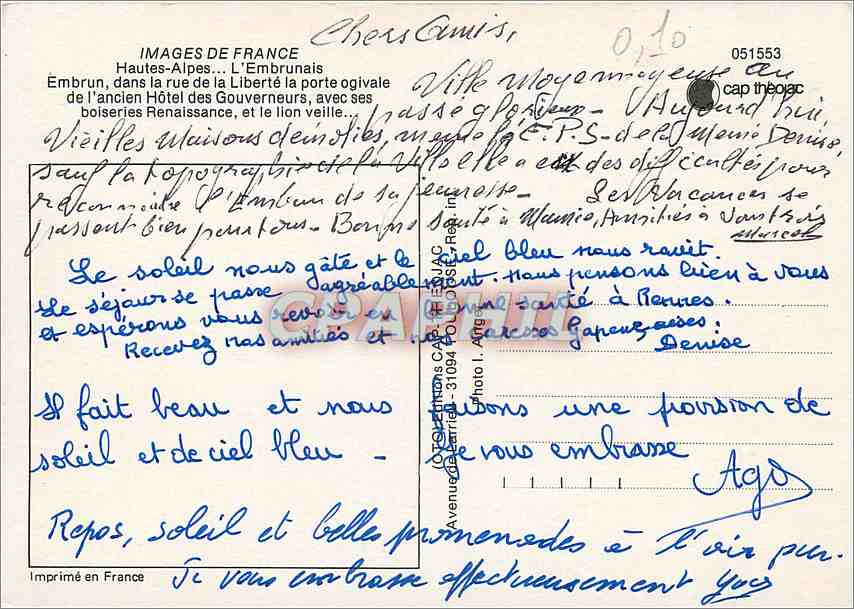 Chers Amis,
0,10
IMAGES DE FRANCE
Hautes-Alpes... L'Embrunais
Embrun, dans la rue de la Liberté la porte ogivale
de l'ancien Hôtel des Gouverneurs, avec ses
boiseries Renaissance, et le lion veille...
051553
cap théojac
Ville Moyennageuse au
passé glorieux - Aujourd'hui,
Vieilles Maisons démolies, même l'E.P.S - de la Mamie Denise,
sauf la topographie de la Ville elle a eu des difficultés pour
reconnaitre l'Embrun de sa jeunesse - Les Vacances se
passent bien pour tous - Bonne santé à Mamie, Amitiés à Vous trois
Marcel
Le soleil nous gâte et le ciel bleu nous ravit.
Le séjour se passe agréablement. Nous pensons bien à vous
et espérons vous revoir en bonne santé à Rennes.
Recevez nos amitiés et nos caresses Gapençaises.
Denise
Il fait beau et nous faisons une provision de
soleil et de ciel bleu - Je vous embrasse
Repos, soleil et belles promenades à l'air pur.
Je vous embrasse affectueusement
Imprimé en France
Editions CAP-THEOJAC
Avenue de Larrieu - 31094 TOULOUSE - Rep. int.
Photo I. Anger
CPAPHIL